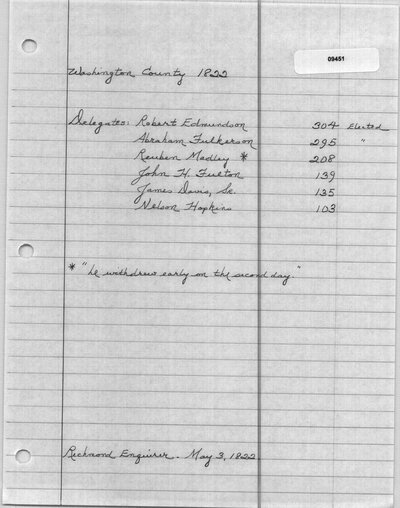 09451
Washington County 1822
Delegates: Robert Edmundson 304 Elected
Abraham Fulkerson 295 "
Reuben Madley * 208
John H. Fulton 139
James Davis, Sr. 135
Nelson Hopkins 103
* "he withdrew early on the second day."
Richmond Enquirer. May 3, 1822